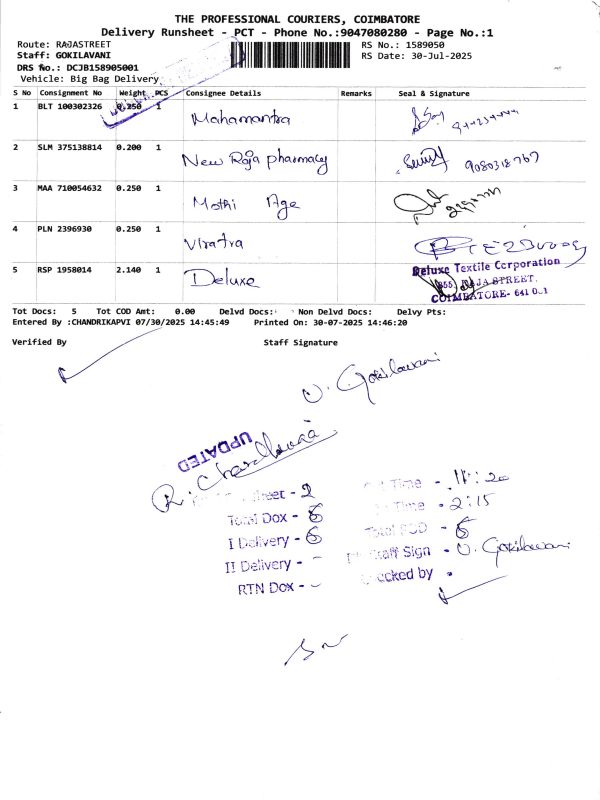 THE PROFESSIONAL COURIERS, COIMBATORE
Delivery Runsheet - PCT - Phone No.:9047080280 - Page No.:1
Route: RAJASTREET RS No.: 1589050
Staff: GOKILAVANI RS Date: 30-Jul-2025
DRS No.: DCJB158905001
Vehicle: Big Bag Delivery
S No Consignment No Weight PCS Consignee Details Remarks Seal & Signature
1 BLT 100302326 0.250 1 Mahamantra
2 SLM 375138814 0.200 1 New Raja pharmacy 9080318767
3 MAA 710054632 0.250 1 Mothi Age
4 PLN 2396930 0.250 1 Viratra
5 RSP 1958014 2.140 1 Deluxe
Deluxe Textile Corporation
RAJA STREET,
COIMBATORE- 641 001
Tot Docs: 5 Tot COD Amt: 0.00 Delvd Docs: Non Delvd Docs: Delvy Pts:
Entered By :CHANDRIKAPVI 07/30/2025 14:45:49 Printed On: 30-07-2025 14:46:20
Verified By Staff Signature
V. Gokilavani
UPDATED
- 2 Time - 11:20
Total Dox - Time - 2:15
I Delivery - Total POD -
II Delivery - - Staff Sign - V. Gokilavani
RTN Dox - - Checked by -